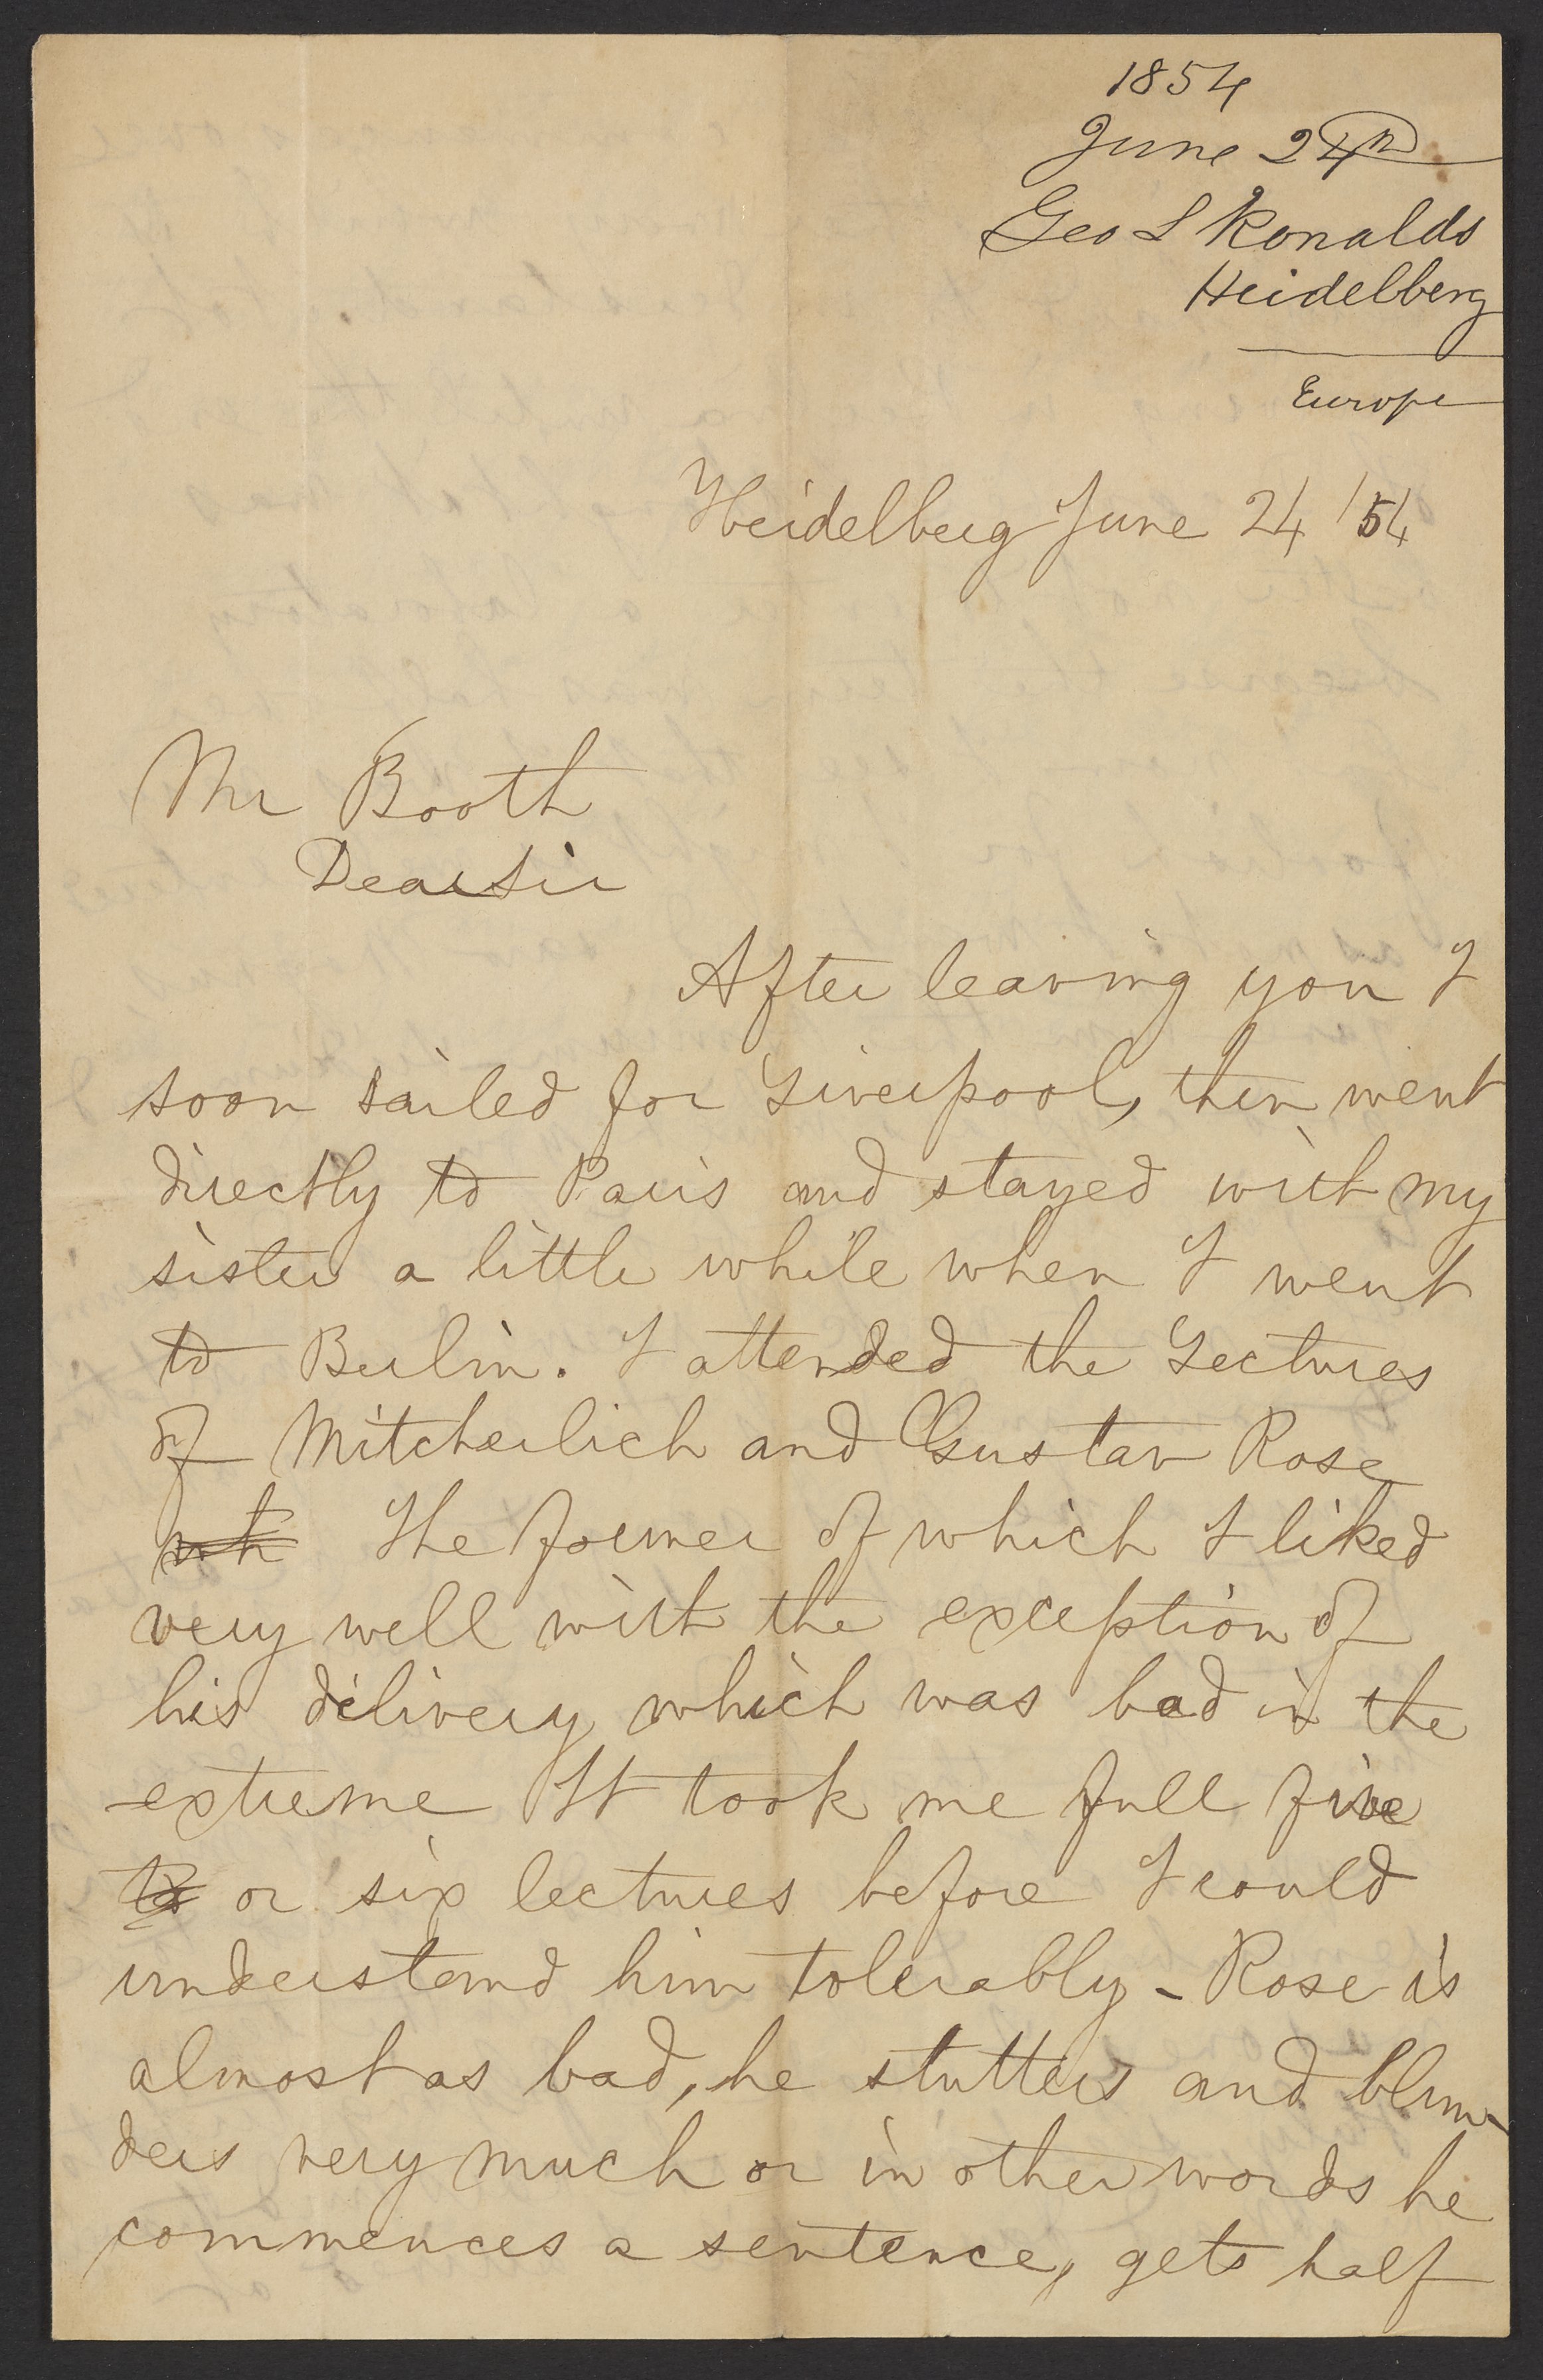 1854
June 24th
Geo L Ronalds
Heidelberg
Europe
Heidelberg June 24 /54
Mr Booth
Dear Sir
After leaving you I
soon sailed for Liverpool, then went
directly to Paris and stayed with my
sister a little while when I went
to Berlin. I attended the Lectures
of Mitcherlich and Gustav Rose
wh The former of which I liked
very well with the exception of
his delivery which was bad in the
extreme It took me full five
to or six lectures before I could
understand him tolerably - Rose is
almost as bad, he stutters and blun-
ders very much or in other words he
commences a sentence, gets half